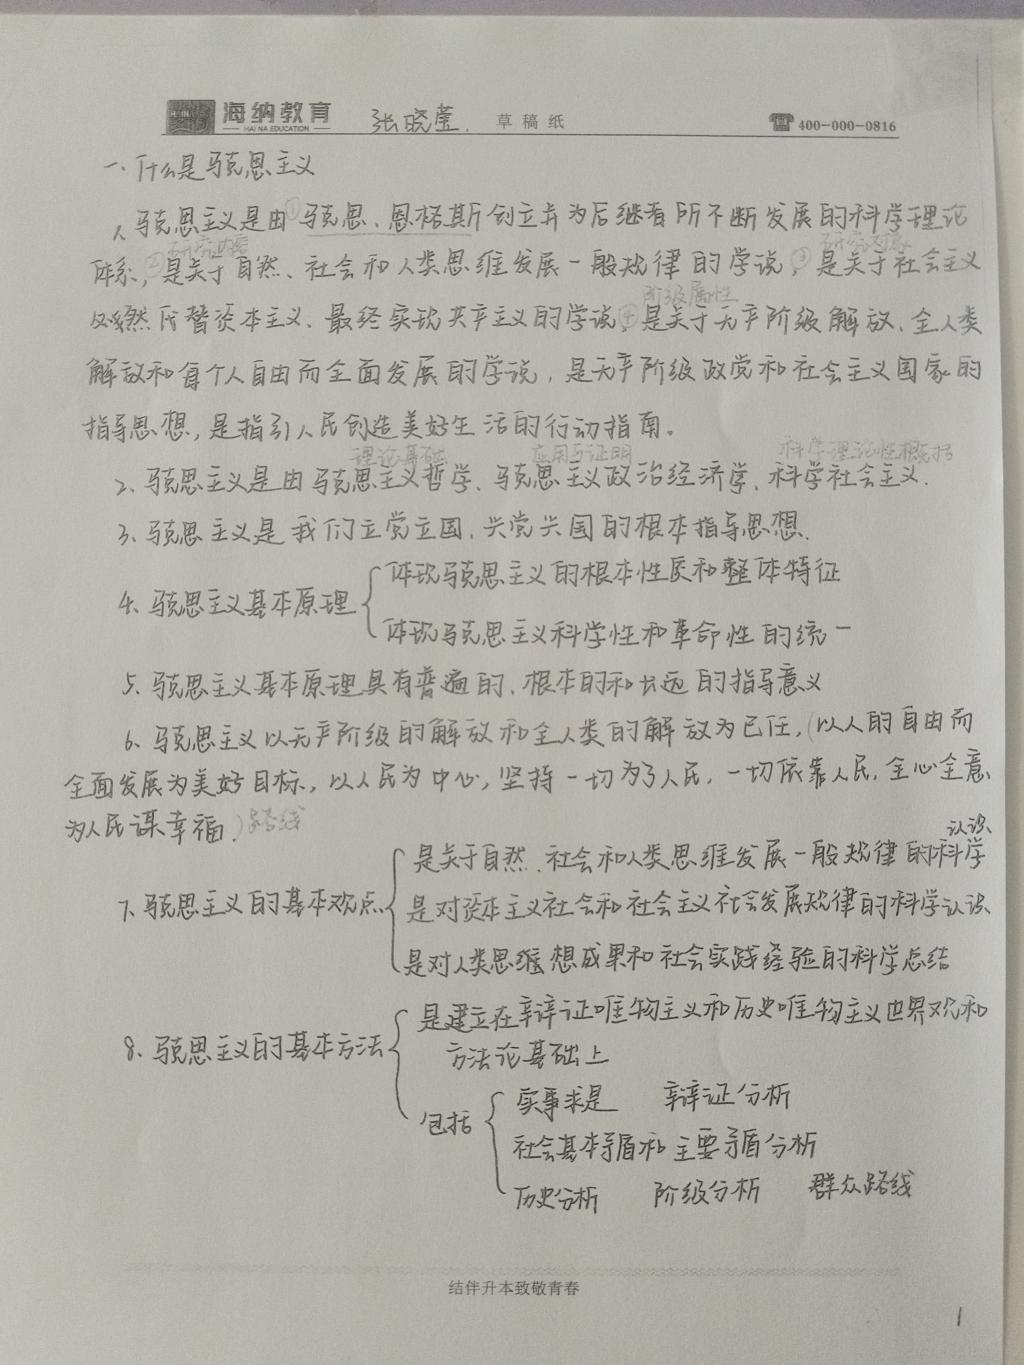 海纳教育
HAI NA EDUCATION
张晓莹. 草稿纸 400-000-0816
一、什么是马克思主义
1、马克思主义是由①马克思、恩格斯创立并为后继者所不断发展的科学理论
研究内容 研究对象
体系,②是关于自然、社会和人类思维发展一般规律的学说,③是关于社会主义
阶级属性
必然代替资本主义、最终实现共产主义的学说,④是关于无产阶级解放、全人类
解放和每个人自由而全面发展的学说,是无产阶级政党和社会主义国家的
指导思想,是指引人民创造美好生活的行动指南。
理论基础 应用与证明 科学理论性概括
2、马克思主义是由马克思主义哲学、马克思主义政治经济学、科学社会主义.
3、马克思主义是我们立党立国、兴党兴国的根本指导思想.
4、马克思主义基本原理
体现马克思主义的根本性质和整体特征
体现马克思主义科学性和革命性的统一
5、马克思主义基本原理具有普遍的、根本的和长远的指导意义
6、马克思主义以无产阶级的解放和全人类的解放为己任,(以人的自由而
全面发展为美好目标,以人民为中心,坚持一切为了人民,一切依靠人民,全心全意
为人民谋幸福.)路线
7、马克思主义的基本观点
是关于自然、社会和人类思维发展一般规律的科学认识
是对资本主义社会和社会主义社会发展规律的科学认识
是对人类思维想成果和社会实践经验的科学总结
8、马克思主义的基本方法
是建立在辩证唯物主义和历史唯物主义世界观和
方法论基础上
包括
实事求是 辩证分析
社会基本矛盾和主要矛盾分析
历史分析 阶级分析 群众路线
结伴升本致敬青春
1